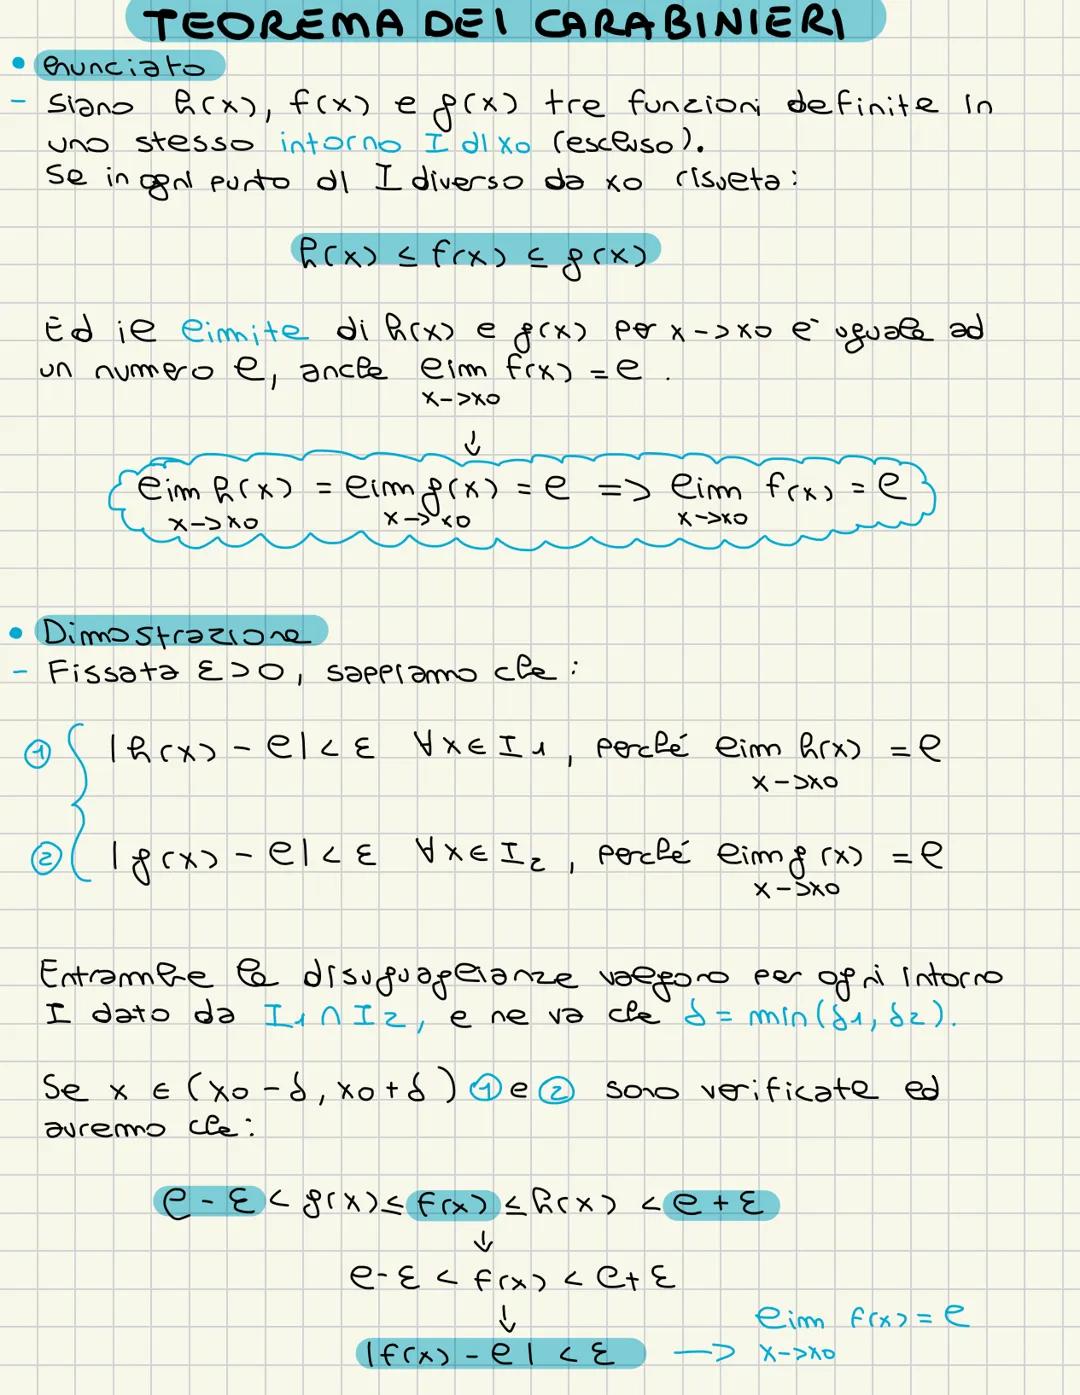 TEOREMA DEI CARABINIERI
• enunciato
- Siano h(x), f(x) e g(x) tre funzioni definite in
uno stesso intorno I di x0 (escluso).
Se in ogni punto di I diverso da x0 risulta:
h(x) ≤ f(x) ≤ g(x)
Ed il limite di h(x) e g(x) per x->x0 è uguale ad
un numero l, anche lim f(x) = l.
x->x0
↓
lim h(x) = lim g(x) = l => lim f(x) = l
x->x0 x->x0 x->x0
• Dimostrazione
- Fissata ε>0, sappiamo che:
① |h(x) - l| < ε ∀x∈I1, perché lim h(x) = l
x->x0
② |g(x) - l| < ε ∀x∈I2, perché lim g(x) = l
x->x0
Entrambe le disuguaglianze valgono per ogni intorno
I dato da I1∩I2, e ne va che δ = min(δ1, δ2).
Se x ∈ (x0-δ, x0+δ) ① e ② sono verificate ed
avremo che:
l-ε < g(x) ≤ f(x) ≤ h(x) < l+ε
↓
l-ε < f(x) < l+ε
↓
|f(x) - l| < ε -> lim f(x) = l
x->x0